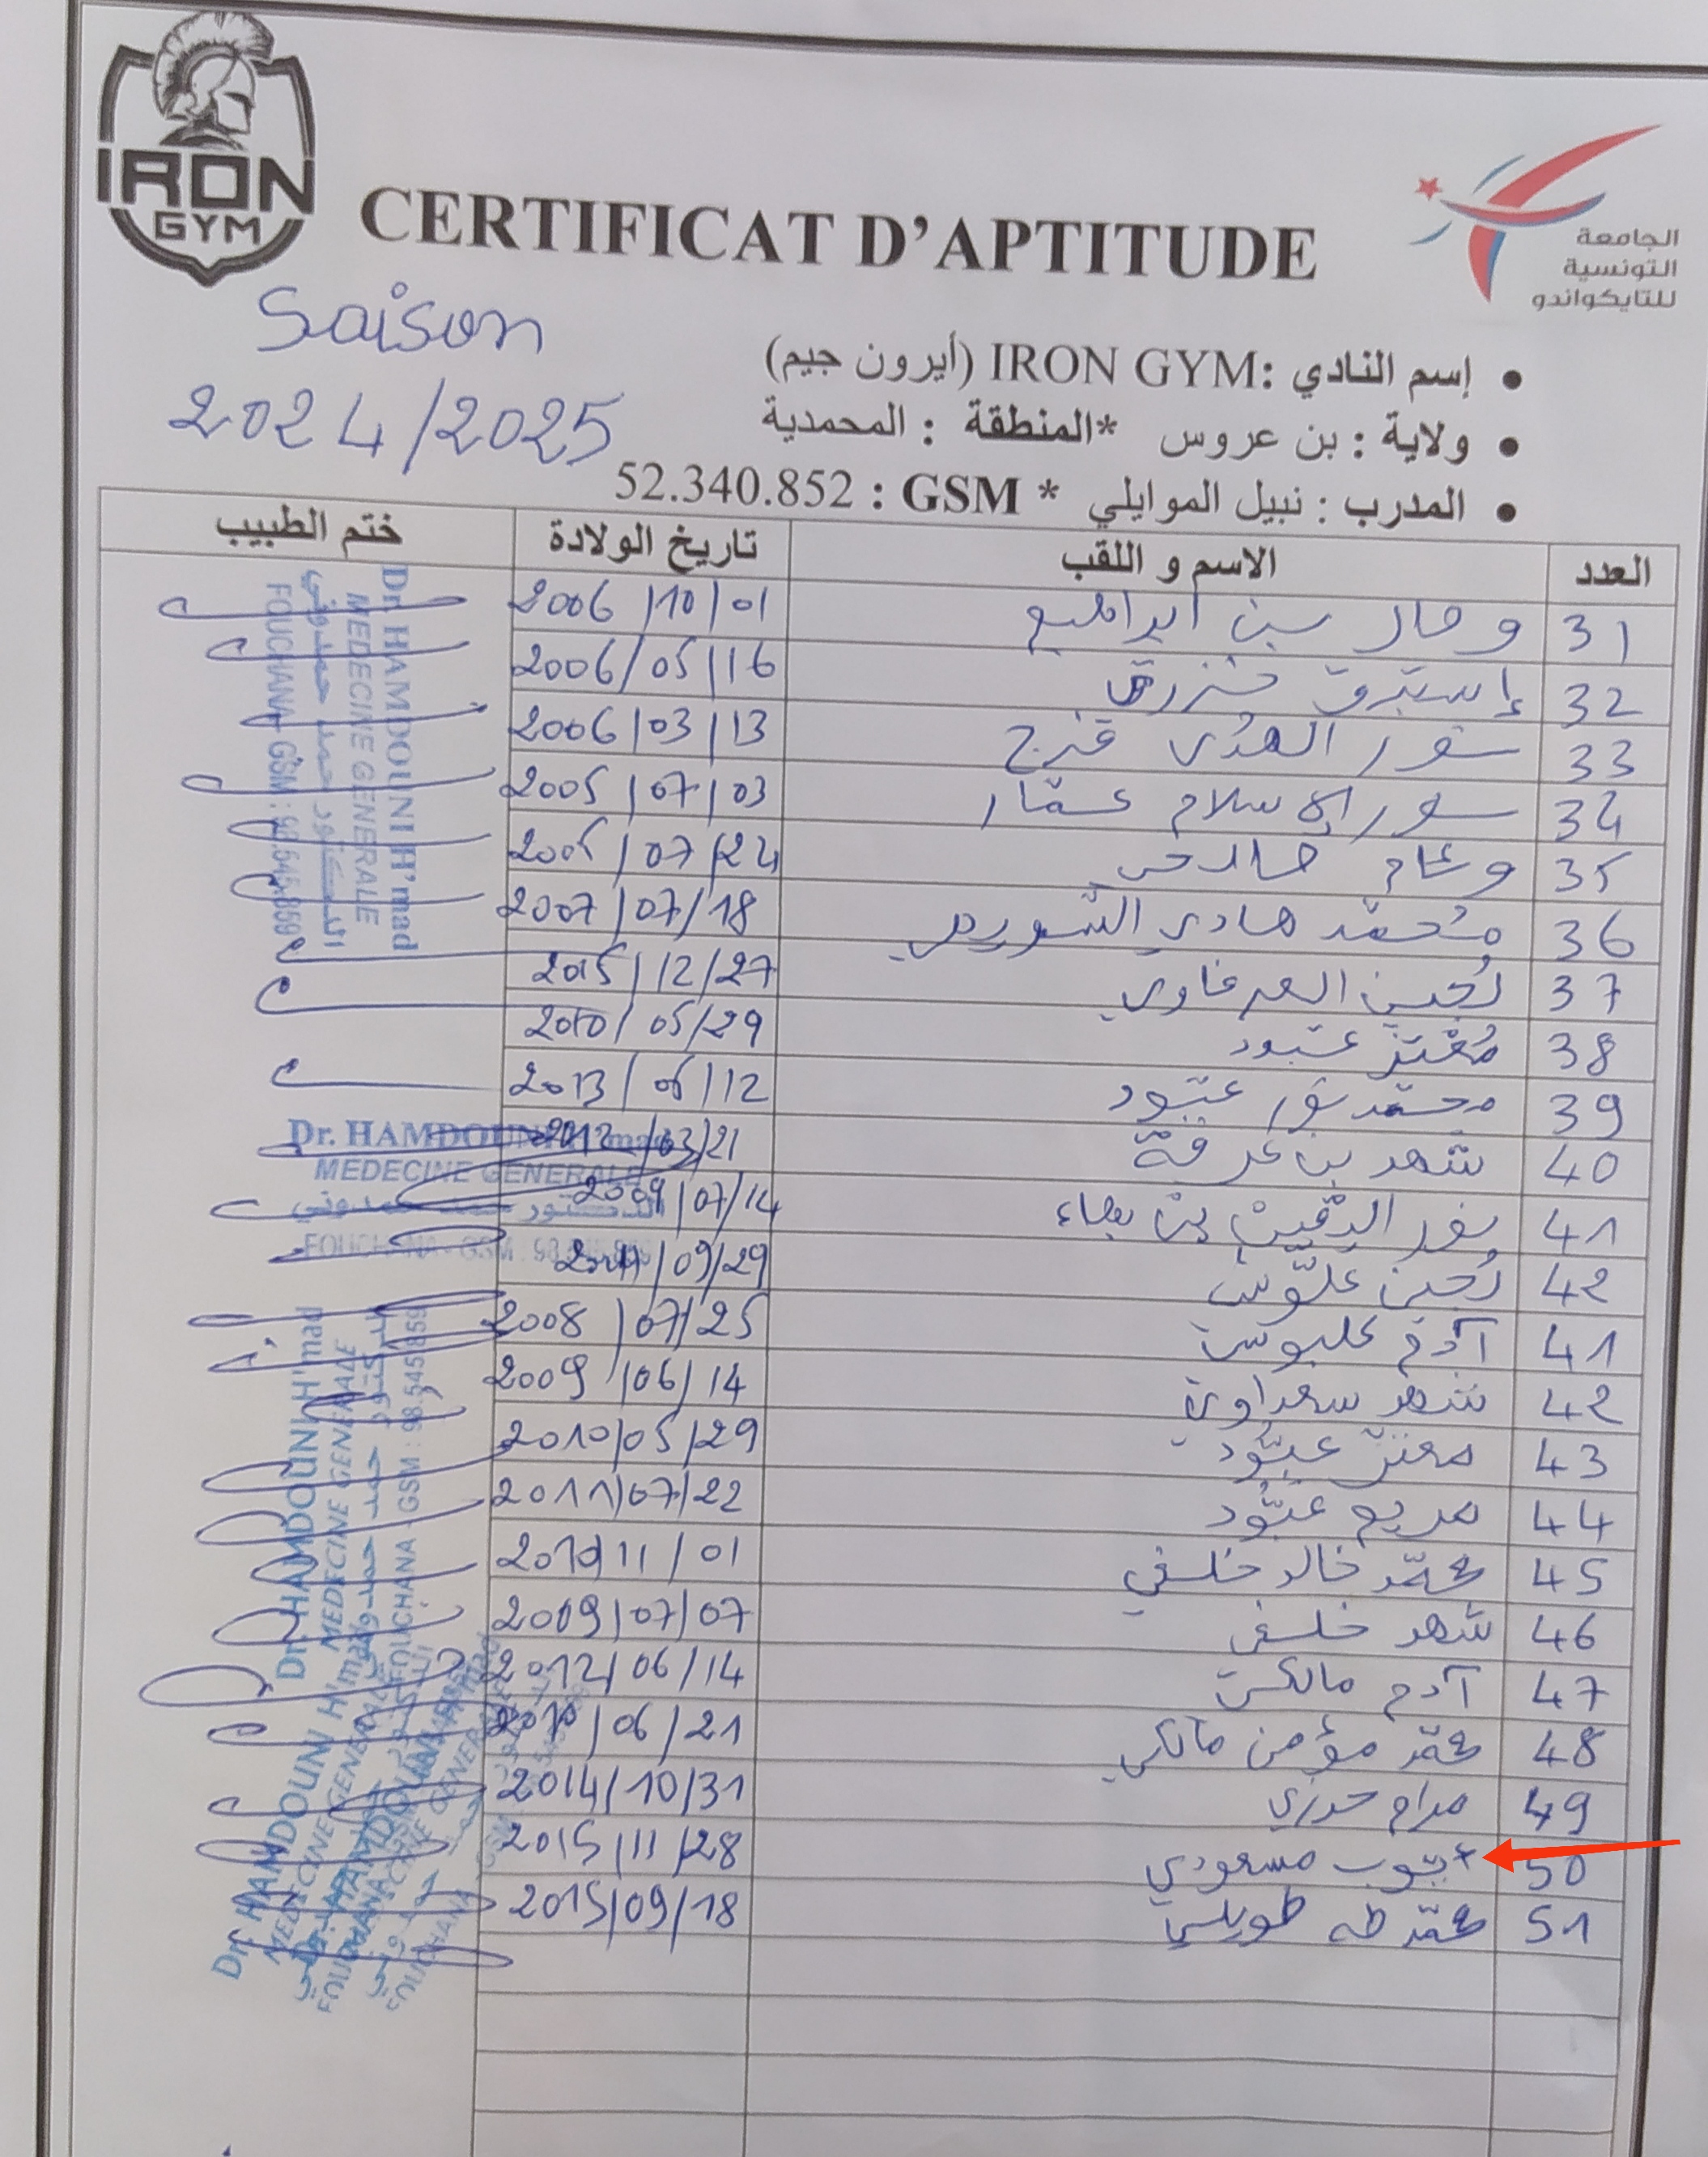 IRON
GYM
CERTIFICAT D'APTITUDE
الجامعة
التونسية
للتايكواندو
Saison
2024/2025
• إسم النادي :IRON GYM (أيرون جيم)
• ولاية : بن عروس *المنطقة : المحمدية
• المدرب : نبيل الموايلي * GSM : 52.340.852
العدد الاسم و اللقب تاريخ الولادة ختم الطبيب
31 بن ابراهيم 2006/10/01
32 إستبرق 2006/05/16
33 نور الهدى فرج 2006/03/13
34 نور الإسلام عمّار 2005/07/03
35 وئام /07/24
36 محمّد هادي 2007/07/18
37 2015/12/27
38 مُعْتز عبّود 2010/05/29
39 محمّد نور عبّود 2013/ /12
40 شهد بن عرفة 2012/03/21
41 نور اليقين بن بهاء 2009/07/14
42 /09/29
41 آدم 2008/07/25
42 شهد سعداوي 2009/06/14
43 معتز عبّود 2010/05/29
44 مريم عبّود 2011/07/22
45 محمّد خالد خلفي 2010/11/01
46 شهد خلفي 2009/07/07
47 آدم مالكي 2012/06/14
48 محمّد مؤمن مالكي 2010/06/21
49 مرام 2014/10/31
50 مسعودي 2015/11/28
51 محمّد طه طويلي 2015/09/18
Dr. HAMDOUNI H'mad
MEDECINE GENERALE
الدكتور حمد حمدوني
FOUCHANA - GSM : 98.545.859
Dr. HAMDOUNI H'mad
MEDECINE GENERALE
الدكتور حمد حمدوني
FOUCHANA - GSM : 98.545.859
Dr. HAMDOUNI H'mad
MEDECINE GENERALE
الدكتور حمد حمدوني
FOUCHANA - GSM : 98.545.859
Dr. HAMDOUNI H'mad
MEDECINE GENERALE
FOUCHANA